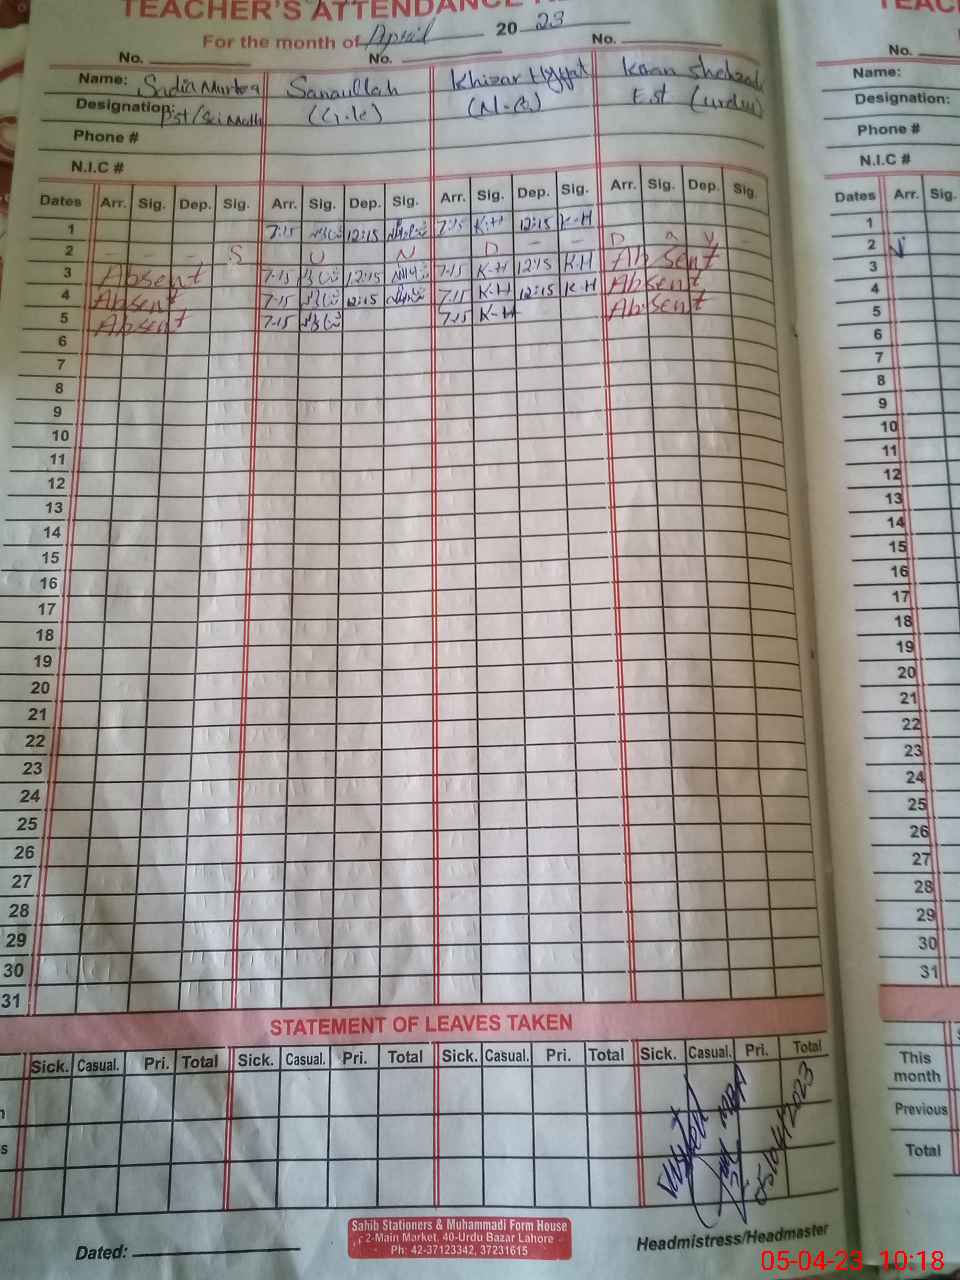 TEACHER'S ATTENDANCE
TEAC
For the month of April 2023
No. No. No. No.
Name: Sadia Murtaza Sanaullah Khizar Hayyat Kiran Shehzad Name:
Designation: Pst/Sci Math (G.k) (N.Q) E.st (urdu) Designation:
Phone # Phone #
N.I.C # N.I.C #
Dates Arr. Sig. Dep. Sig. Arr. Sig. Dep. Sig. Arr. Sig. Dep. Sig. Arr. Sig. Dep. Sig. Dates Arr. Sig.
1 7:15 12:15 7:15 K-H 12:15 K-H 1
2 - - - S U N D - - D a y - 2
3 Absent 7-15 12:15 7-15 K-H 12:15 K-H Absent 3
4 Absent 7-15 12:15 7-15 K-H 12:15 K-H Absent 4
5 Absent 7-15 7-15 K-H Absent 5
6 6
7 7
8 8
9 9
10 10
11 11
12 12
13 13
14 14
15 15
16 16
17 17
18 18
19 19
20 20
21 21
22 22
23 23
24 24
25 25
26 26
27 27
28 28
29 29
30 30
31 31
STATEMENT OF LEAVES TAKEN
Sick. Casual. Pri. Total Sick. Casual. Pri. Total Sick. Casual. Pri. Total Sick. Casual. Pri. Total
This month
Previous
Total
Visited
05/04/2023
Sahib Stationers & Muhammadi Form House
2-Main Market, 40-Urdu Bazar Lahore
Ph: 42-37123342, 37231615
Dated: Headmistress/Headmaster
05-04-23 10:18